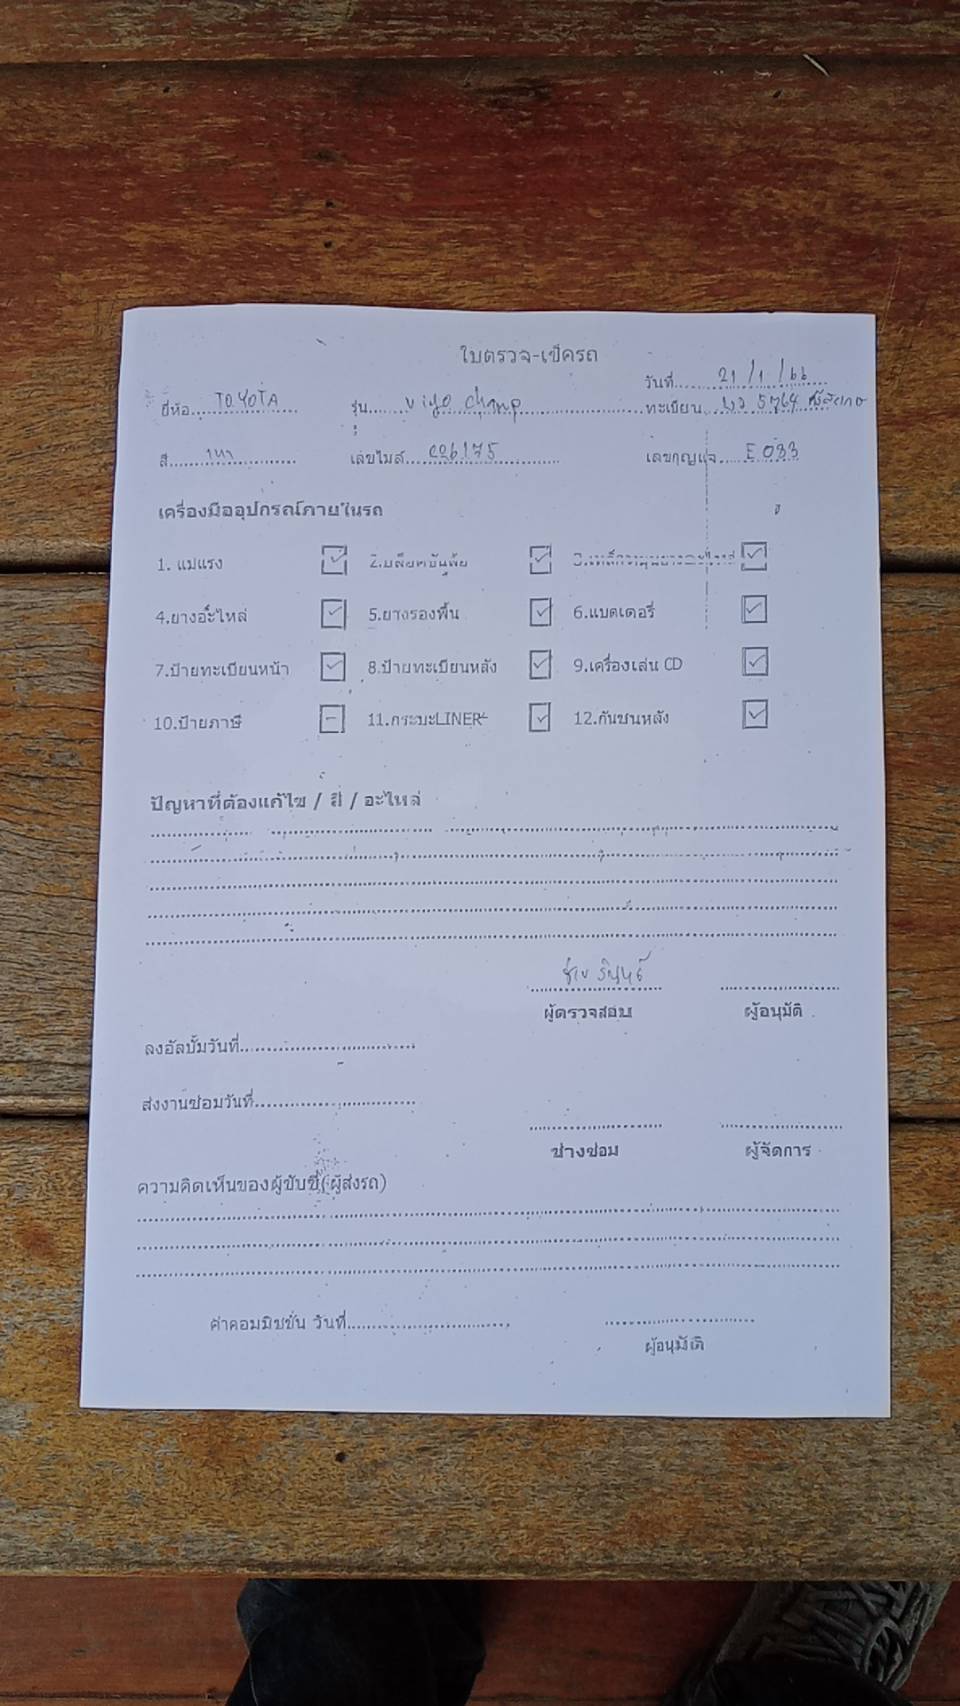 ใบตรวจ-เช็ครถ
วันที่ 21/1/66
ยี่ห้อ TOYOTA รุ่น vigo champ ทะเบียน 5764
สี เทา เลขไมล์ 226175 เลขกุญแจ E 033
เครื่องมืออุปกรณ์ภายในรถ
1. แม่แรง 2.บล๊อคขันล้อ
4.ยางอะไหล่ 5.ยางรองพื้น 6.แบตเตอรี่
7.ป้ายทะเบียนหน้า 8.ป้ายทะเบียนหลัง 9.เครื่องเล่น CD
10.ป้ายภาษี 11.กระบะLINER 12.กันชนหลัง
ปัญหาที่ต้องแก้ไข / สี / อะไหล่
ผู้ตรวจสอบ ผู้อนุมัติ
ลงอัลบั้มวันที่
ส่งงานซ่อมวันที่
ช่างซ่อม ผู้จัดการ
ความคิดเห็นของผู้ขับขี่(ผู้ส่งรถ)
ค่าคอมมิชชั่น วันที่
ผู้อนุมัติ